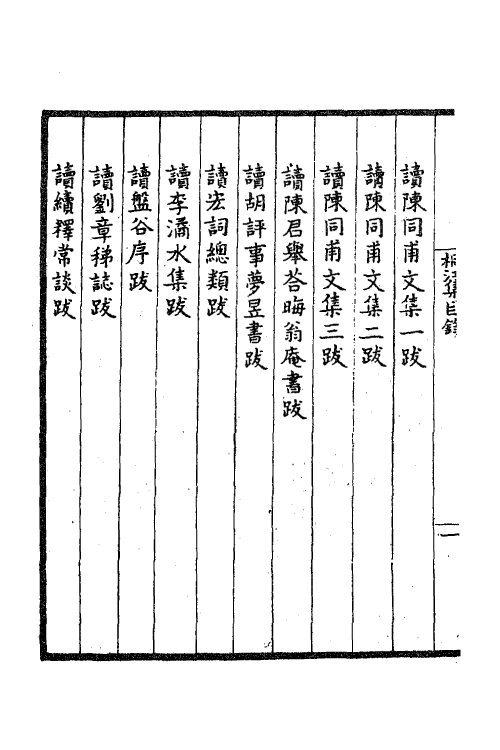 讀陳同甫文集一跋
讀陳同甫文集二跋
讀陳同甫文集三跋
讀陳君舉荅晦翁庵書跋
讀胡評事夢昱書跋
讀宏詞總類跋
讀李潏水集跋
讀盤谷序跋
讀劉章稊誌跋
讀續釋常談跋
桐江集目錄
一